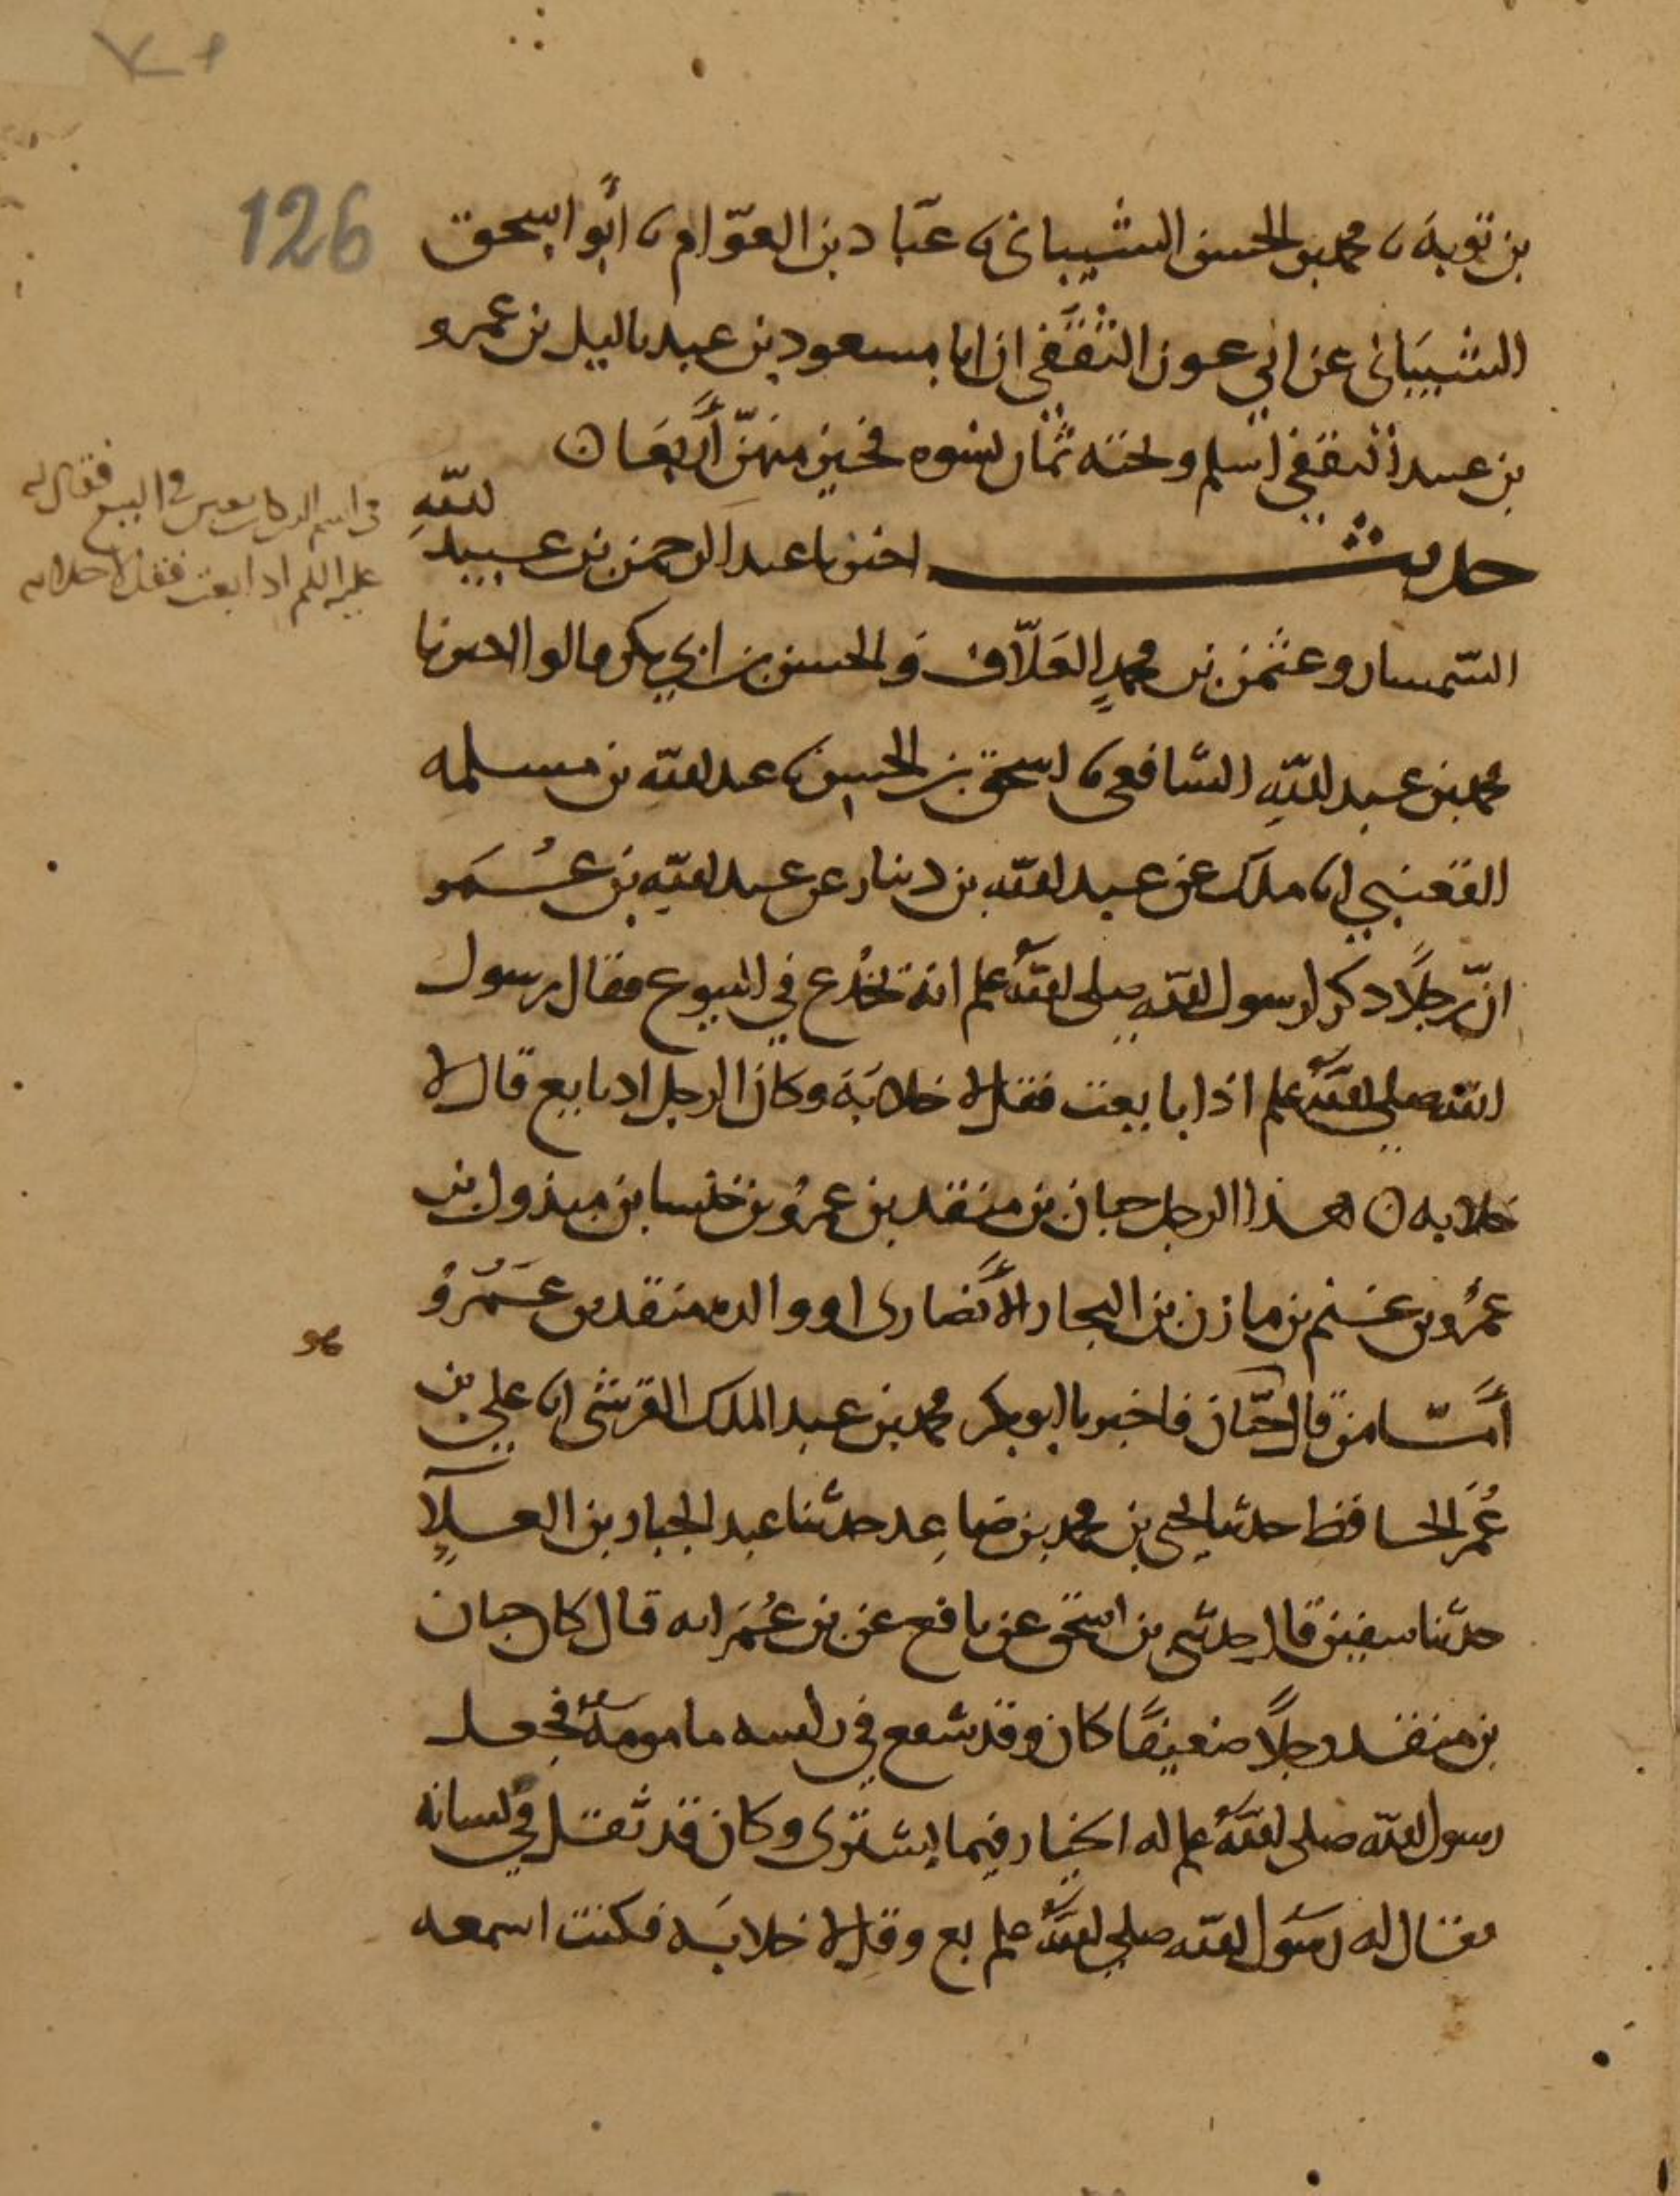 126
بن توبة نا محمد بن الحسن الشيباني نا عبّاد بن العوّام نا أبو اسحق
الشيبَاني عن ابي عون الثقَفي ان ابا مسعود بن عبد ياليل بن عمرو
بن عبيد الثقفي اسلم وتحته ثمان نسوه فخير منهنّ أربعَا ن
حديث اخبرنا عبد الرحمن بن عبيد الله
السّمسار وعثمن بن محمدٍ العَلّاف وَالحسن بن ابي بكر قالوا اخبرنا
محمد بن عبد اللهِ الشافعي نا اسحق بن الحسن نا عبد الله بن مسلمه
القعنبي انا ملك عن عبد الله بن دينار عن عبد الله بن عُمَر
انّ رجلًا ذكر لرسول الله صلى الله علم انه يُخْدع في البيوع فقال رسول
الله صلى الله علم اذا بايعت فقل لا خلابَة وكان الرجل اذا بايع قال لا
خلابه ن هذا الرجل حبان بن منقذ بن عمرو بن خنسا بن مبذول بن
عمرو بن غنم بن مازن بن النجار الأنصارى او والده منقذ بن عَمْرو
أمّا من قال حبّان فاخبرنا ابو بكر محمد بن عبد الملك القرشي انا علي بن
عُمَر الحافظ حدثنا يحيى بن محمد بن صاعِد حدثنا عبد الجبار بن العلآ
حدثنا سفين قال حدثني بن اسحق عن نافع عن بن عُمَر انه قال كان حبان
بن منقذ رجلًا ضعيفًا كان وقد شفع في راسه مامومةً فجعل
رسول الله صلى الله علم له الخيار فيما يشتري وكان قد ثقل في لسانه
فقال له رسَول الله صلى الله علم بع وقل لا خلابَه فكنت اسمعه
في اسم الذي كان يغبن في البيع فقال له
عليه السلم اذا بعت فقل لا خلابه